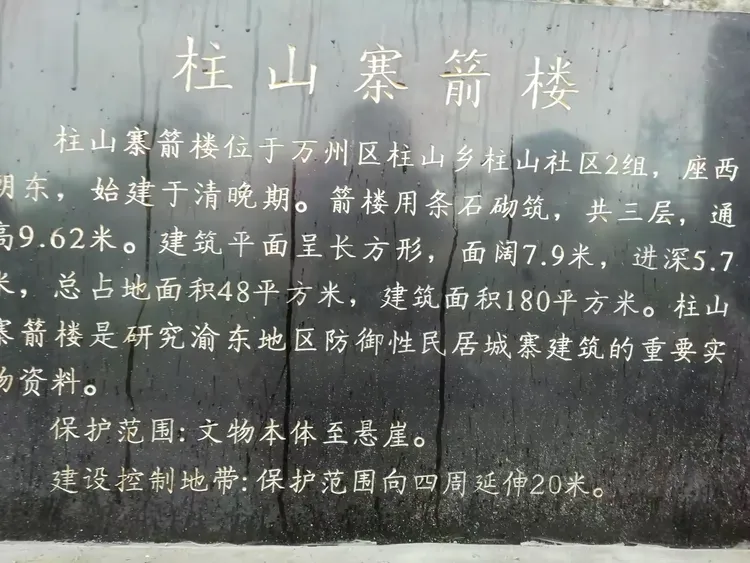 柱山寨箭楼
柱山寨箭楼位于万州区柱山乡柱山社区2组，座西
朝东，始建于清晚期。箭楼用条石砌筑，共三层，通
高9.62米。建筑平面呈长方形，面阔7.9米，进深5.7
米，总占地面积48平方米，建筑面积180平方米。柱山
寨箭楼是研究渝东地区防御性民居城寨建筑的重要实
物资料。
保护范围：文物本体至悬崖。
建设控制地带：保护范围向四周延伸20米。